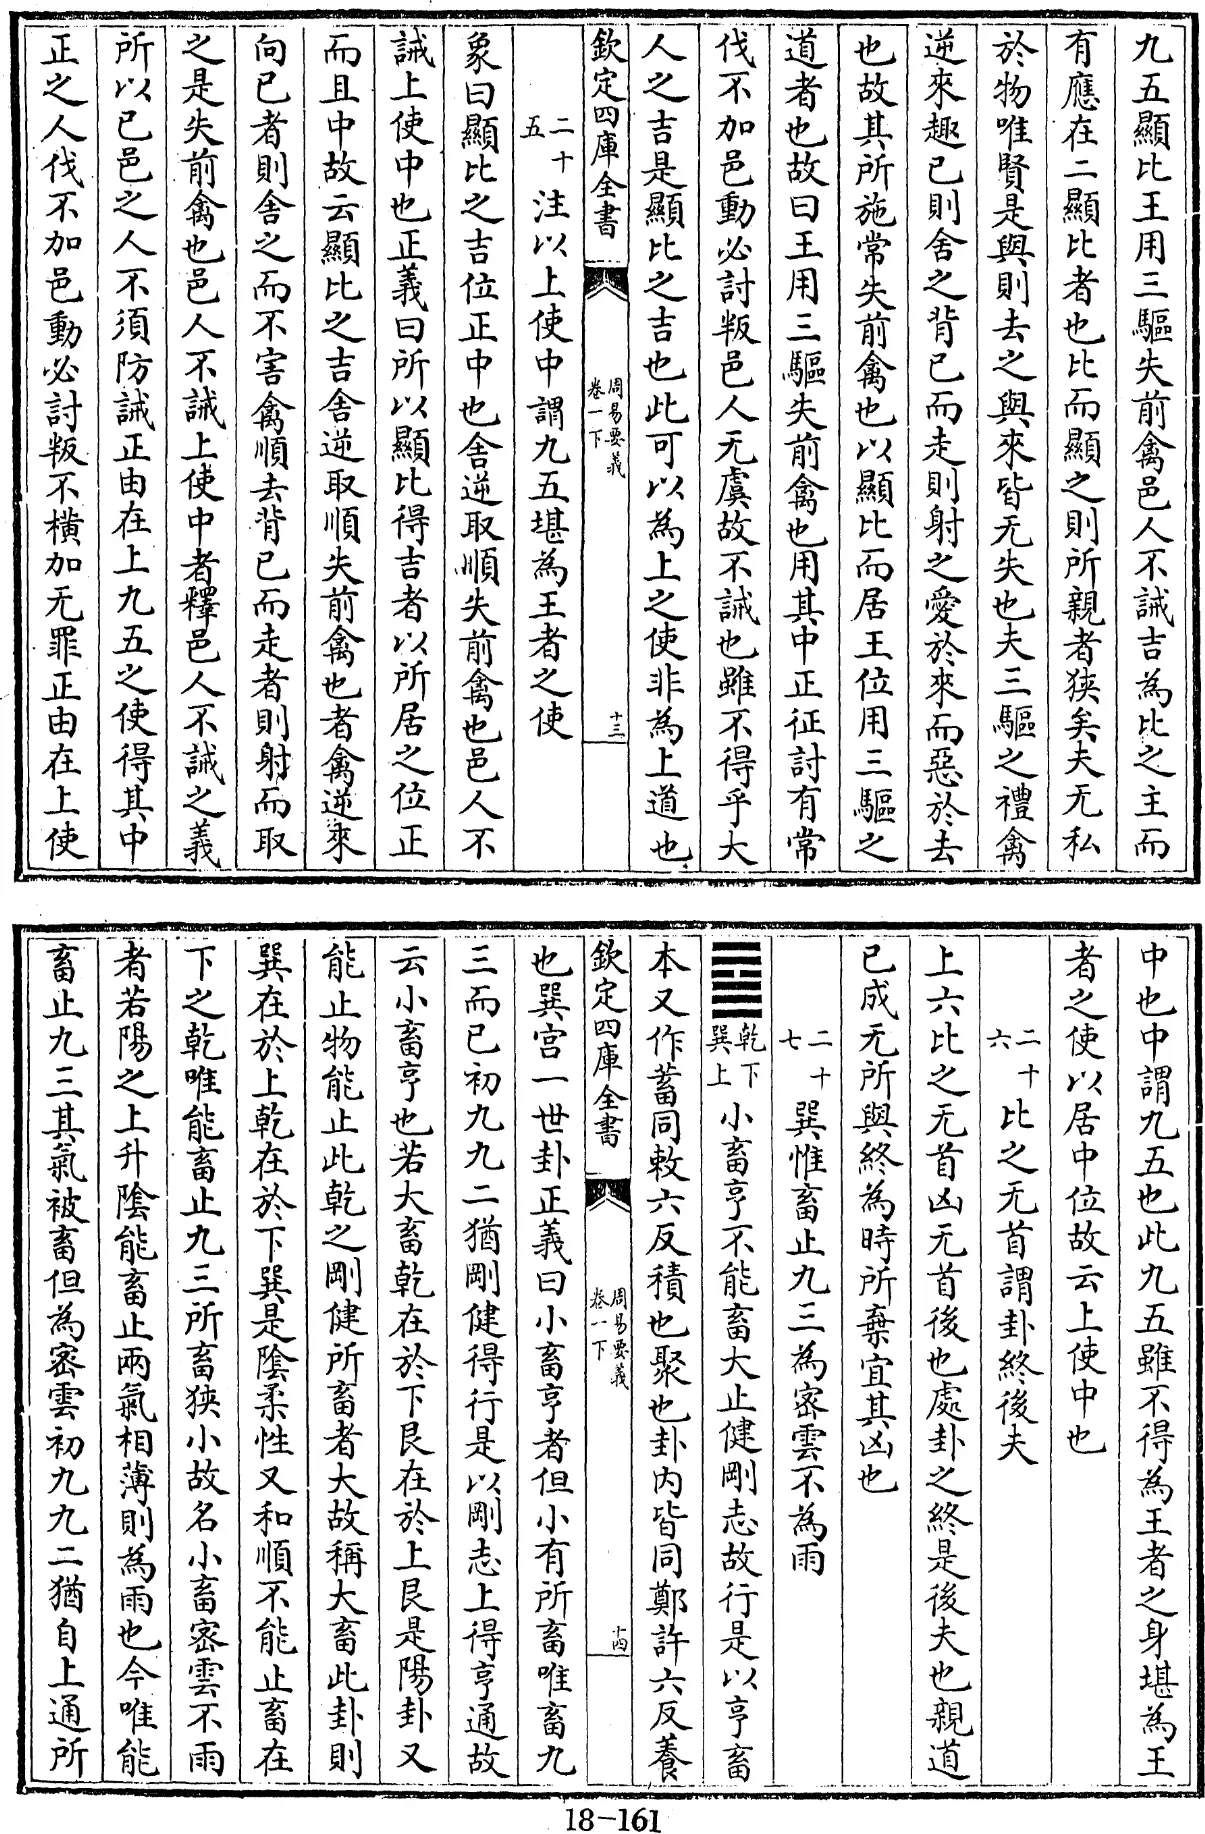 九五顯比王用三驅失前禽邑人不誡吉為比之主而
有應在二顯比者也比而顯之則所親者狹矣夫无私
於物唯賢是與則去之與來皆无失也夫三驅之禮禽
逆來趣己則舍之背己而走則射之愛於來而惡於去
也故其所施常失前禽也以顯比而居王位用三驅之
道者也故曰王用三驅失前禽也用其中正征討有常
伐不加邑動必討叛邑人无虞故不誡也雖不得乎大
人之吉是顯比之吉也此可以為上之使非為上道也
欽定四庫全書
周易要義
卷一下
十三
二十五
注以上使中謂九五堪為王者之使
象曰顯比之吉位正中也舍逆取順失前禽也邑人不
誡上使中也正義曰所以顯比得吉者以所居之位正
而且中故云顯比之吉舍逆取順失前禽也者禽逆來
向已者則舍之而不害禽順去背已而走者則射而取
之是失前禽也邑人不誡上使中者釋邑人不誡之義
所以已邑之人不須防誡正由在上九五之使得其中
正之人伐不加邑動必討叛不橫加无罪正由在上使
中也中謂九五也此九五雖不得為王者之身堪為王
者之使以居中位故云上使中也
二十六
比之无首謂卦終後夫
上六比之无首凶无首後也處卦之終是後夫也親道
已成无所與終為時所棄宜其凶也
二十七
巽惟畜止九三為密雲不為雨
䷈
乾下
巽上
小畜亨不能畜大止健剛志故行是以亨畜
本又作蓄同敕六反積也聚也卦內皆同鄭許六反養
欽定四庫全書
周易要義
卷一下
十四
也巽宮一世卦正義曰小畜亨者但小有所畜唯畜九
三而已初九九二猶剛健得行是以剛志上得亨通故
云小畜亨也若大畜乾在於下艮在於上艮是陽卦又
能止物能止此乾之剛健所畜者大故稱大畜此卦則
巽在於上乾在於下巽是陰柔性又和順不能止畜在
下之乾唯能畜止九三所畜狹小故名小畜密雲不雨
者若陽之上升陰能畜止兩氣相薄則為雨也今唯能
畜止九三其氣被畜但為密雲初九九二猶自上通所
18-161